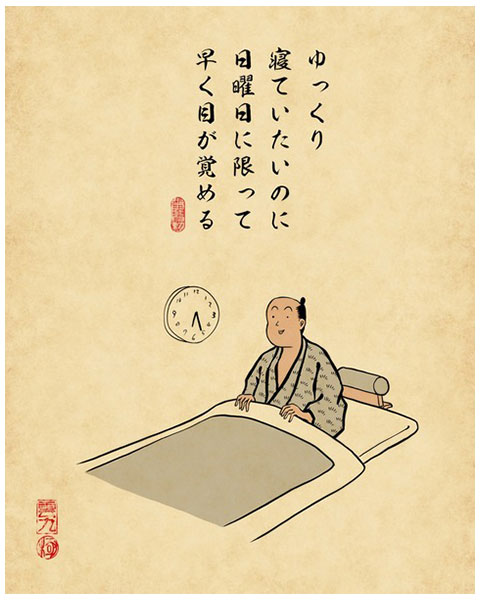 ゆっくり
寝ていたいのに
日曜日に限って
早く目が覚める